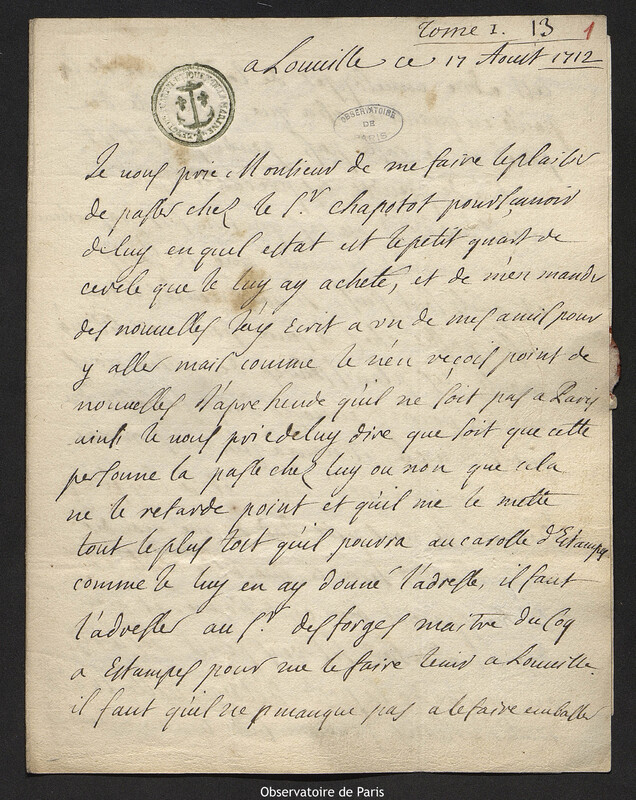 Tome I. 13 1
a Louville ce 17 Aoust 1712
OBSERVATOIRE
DE
PARIS
Je vous prie Monsieur de me faire le plaisir
de passer chez le Sr. Chapotot pour scavoir
de luy en quel estat est le petit quart de
cercle que je luy ay acheté, et de m'en mander
des nouvelles j'ay écrit a un de mes amis pour
y aller mais comme je n'en reçois point de
nouvelles j'aprehende qu'il ne soit pas a Paris
ainsi je vous prie de luy dire que soit que cette
personne la passe chez luy ou non que cela
ne le retarde point et qu'il me le mette
tout le plus tost qu'il pourra au carosse d'Estampes
comme je luy en ay donné l'adresse, il faut
l'adresser au Sr. desforges maitre du Coq
a Estampes pour me le faire tenir a Louville.
il faut qu'il ne manque pas a le faire emballer
Observatoire de Paris